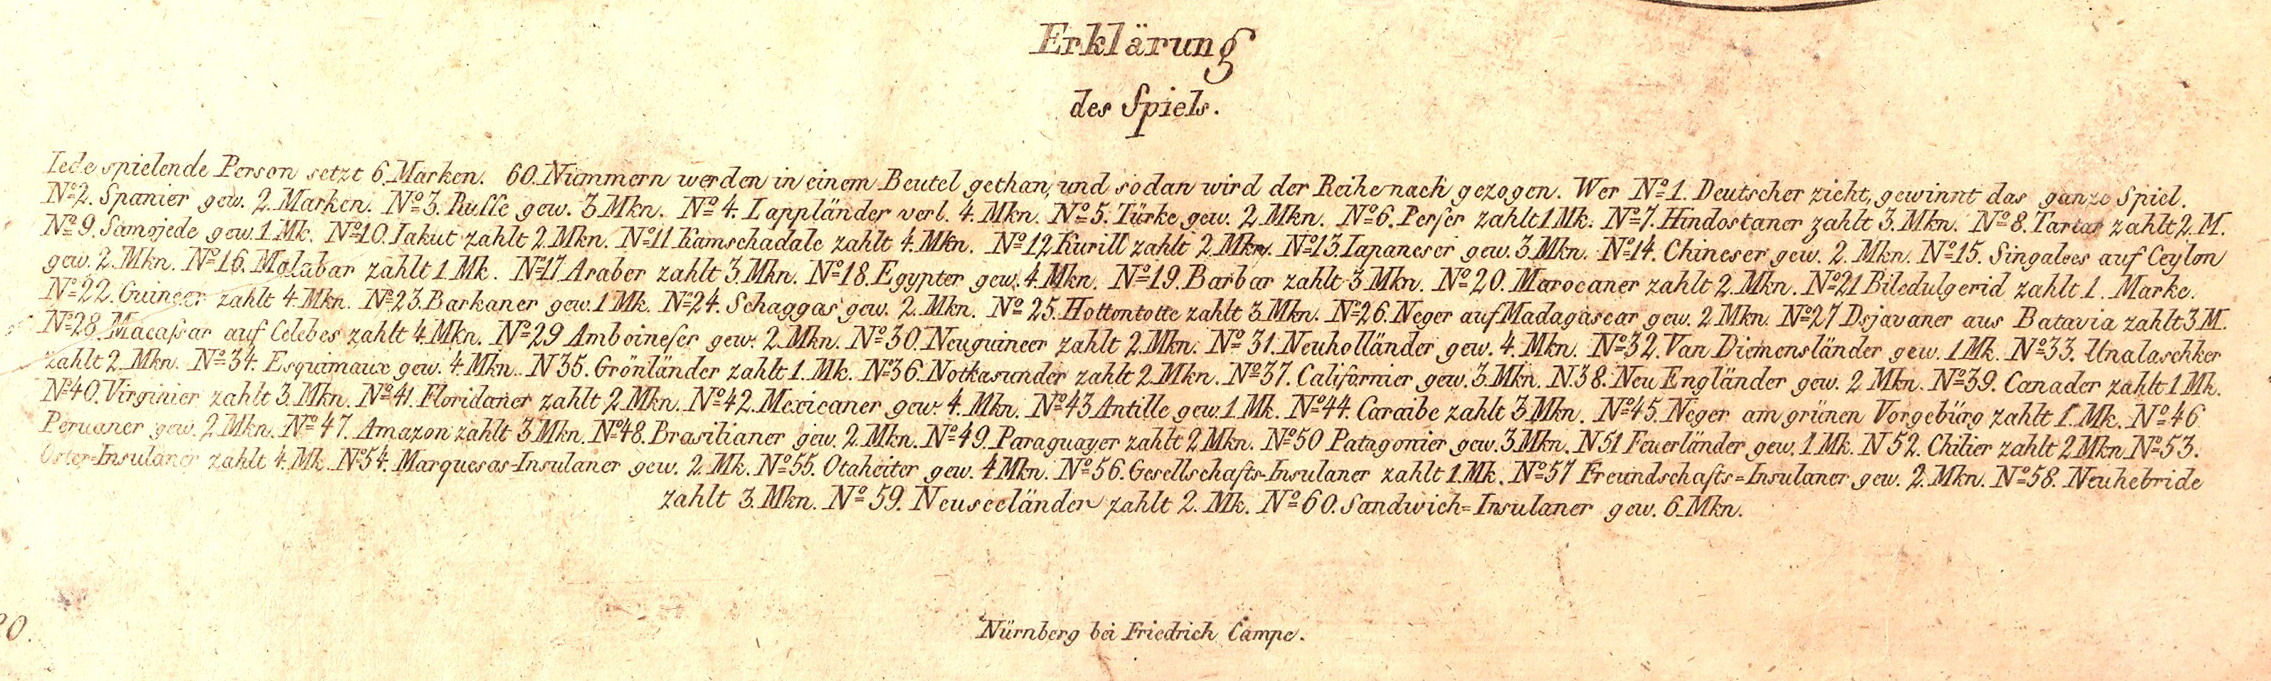 Erklärung
des Spiels.
Iede spielende Person setzt 6. Marken. 60. Nummern werden in einem Beutel gethan, und sodan wird der Reihe nach gezogen. Wer No. 1. Deutscher zieht, gewinnt das ganze Spiel.
No. 2. Spanier gew. 2. Marken. No. 3. Ruſse gew. 3 Mkn. No. 4. Lappländer verl. 4. Mkn. No. 5. Türke gew. 2 Mkn. No. 6. Perſer zahlt 1 Mk. No. 7. Hindostaner zahlt 3. Mkn. No. 8. Tartar zahlt 2. M.
No. 9. Samojede gew. 1 Mk. No. 10. Jakut zahlt 2. Mkn. No. 11 Kamschadale zahlt 4. Mkn. No. 12. Kurill zahlt 2. Mkn. No. 13. Iapaneser gew. 3. Mkn. No. 14. Chineser gew. 2. Mkn. No. 15. Singalees auf Ceylon
gew. 2. Mkn. No. 16. Malabar zahlt 1 Mk. No. 17 Araber zahlt 3. Mkn. No. 18. Egypter gew. 4. Mkn. No. 19. Barbar zahlt 3 Mkn. No. 20. Marocaner zahlt 2. Mkn. No. 21 Biledulgerid zahlt 1. Marke.
No. 22. Guineer zahlt 4. Mkn. No. 23. Barkaner gew. 1 Mk. No. 24. Schaggas gew. 2. Mkn. No. 25. Hottentotte zahlt 3. Mkn. No. 26. Neger auf Madagascar gew. 2 Mkn. No. 27 Dsjavaner aus Batavia zahlt 3. M.
No. 28. Macaſsar auf Celebes zahlt 4. Mkn. No. 29 Amboineſer gew. 2. Mkn. No. 30. Neuguineer zahlt 2. Mkn. No. 31. Neuholländer gew. 4. Mkn. No. 32. Van Diemensländer gew. 1 Mk. No. 33. Unalaschker
zahlt 2. Mkn. No. 34. Esquimaux gew. 4. Mkn. N 35. Grönländer zahlt 1. Mk. No. 36. Notkasunder zahlt 2. Mkn. No. 37. Californier gew. 3. Mkn. N. 38. Neu Engländer gew. 2 Mkn. No. 39. Canader zahlt 1 Mk.
No. 40. Virginier zahlt 3. Mkn. No. 41. Floridaner zahlt 2. Mkn. No. 42. Mexicaner gew. 4. Mkn. No. 43 Antille gew. 1 Mk. No. 44. Caraibe zahlt 3 Mkn. No. 45. Neger am grünen Vorgebürg zahlt 1. Mk. No. 46
Peruaner gew. 2. Mkn. No. 47. Amazon zahlt 3 Mkn. No. 48. Brasilianer gew. 2. Mkn. No. 49. Paraguayer zahlt 2 Mkn. No. 50 Patagonier gew. 3 Mkn. N 51 Feuerländer gew. 1 Mk. N 52. Chilier zahlt 2 Mkn. No. 53.
Oster-Insulaner zahlt 4. Mk. No. 54. Marquesas-Insulaner gew. 2. Mk. No. 55. Otaheiter gew. 4 Mkn. No. 56. Gesellschafts-Insulaner zahlt 1. Mk. No. 57 Freundschafts-Insulaner gew. 2. Mkn. No. 58. Neuhebride
zahlt 3. Mkn. No. 59. Neuseeländer zahlt 2. Mk. No. 60. Sandwich-Insulaner gew. 6. Mkn.
Nürnberg bei Friedrich Campe.